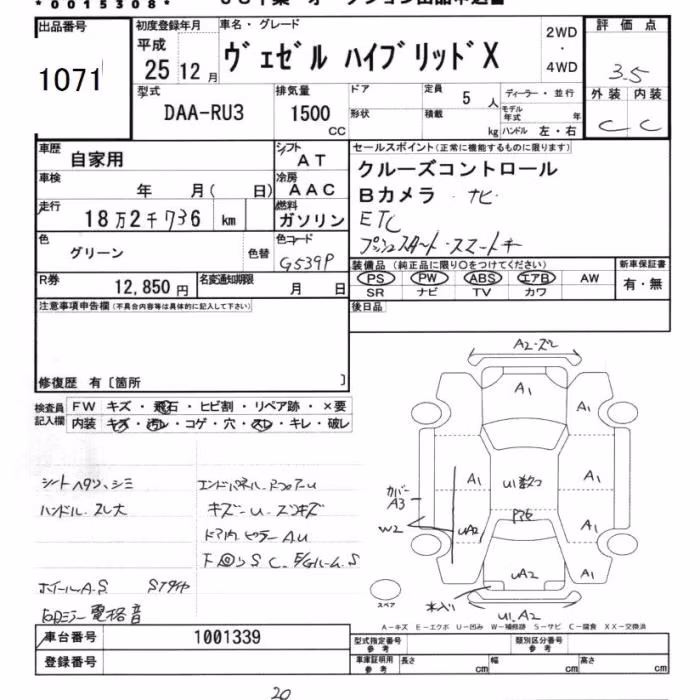 *0015308*
出品番号
1071
初度登録年月
平成
25 12 月
車名・グレード
ヴェゼル ハイブリッドX
2WD
・
4WD
評価点
3.5
外装 内装
C C
型式
DAA-RU3
排気量
1500
CC
ドア
形状
定員
5 人
積載
kg
ディーラー・並行
モデル年式 年
ハンドル 左・右
車歴
自家用
シフト
AT
車検
年 月( 日)
冷房
AAC
走行
18万2千736 km
燃料
ガソリン
色
グリーン
色替
色コード
G539P
セールスポイント(正常に機能するものに限ります)
クルーズコントロール
Bカメラ ・ナビ・
ETC
プッシュスタート・スマートキー
R券
12,850 円
名変通知期限
月 日
装備品(純正品に限り〇をつけてください)
PS PW ABS エアB AW
SR ナビ TV カワ
新車保証書
有・無
注意事項申告欄(不具合内容等は具体的に記入して下さい)
後日品
修復歴 有〔箇所 〕
検査員記入欄
FW キズ・飛石・ヒビ割・リペア跡・×要
内装 キズ・汚レ・コゲ・穴・スレ・キレ・破レ
シートヘタリ、シミ
ハンドル スレ大
ホイールA.S
電格音
キズ
A2・ズレ
A1
A1
A1
A1
A1
A1
U1
カバー
A3
W2
UA2
UA2
U1.A2
スペア
A-キズ E-エクボ U-凹み W-補修跡 S-サビ C-腐食 XX-交換済
車台番号
1001339
登録番号
型式指定番号
参考
類別区分番号
参考
車庫証明用
参考
長さ cm
幅 cm
高さ cm
20